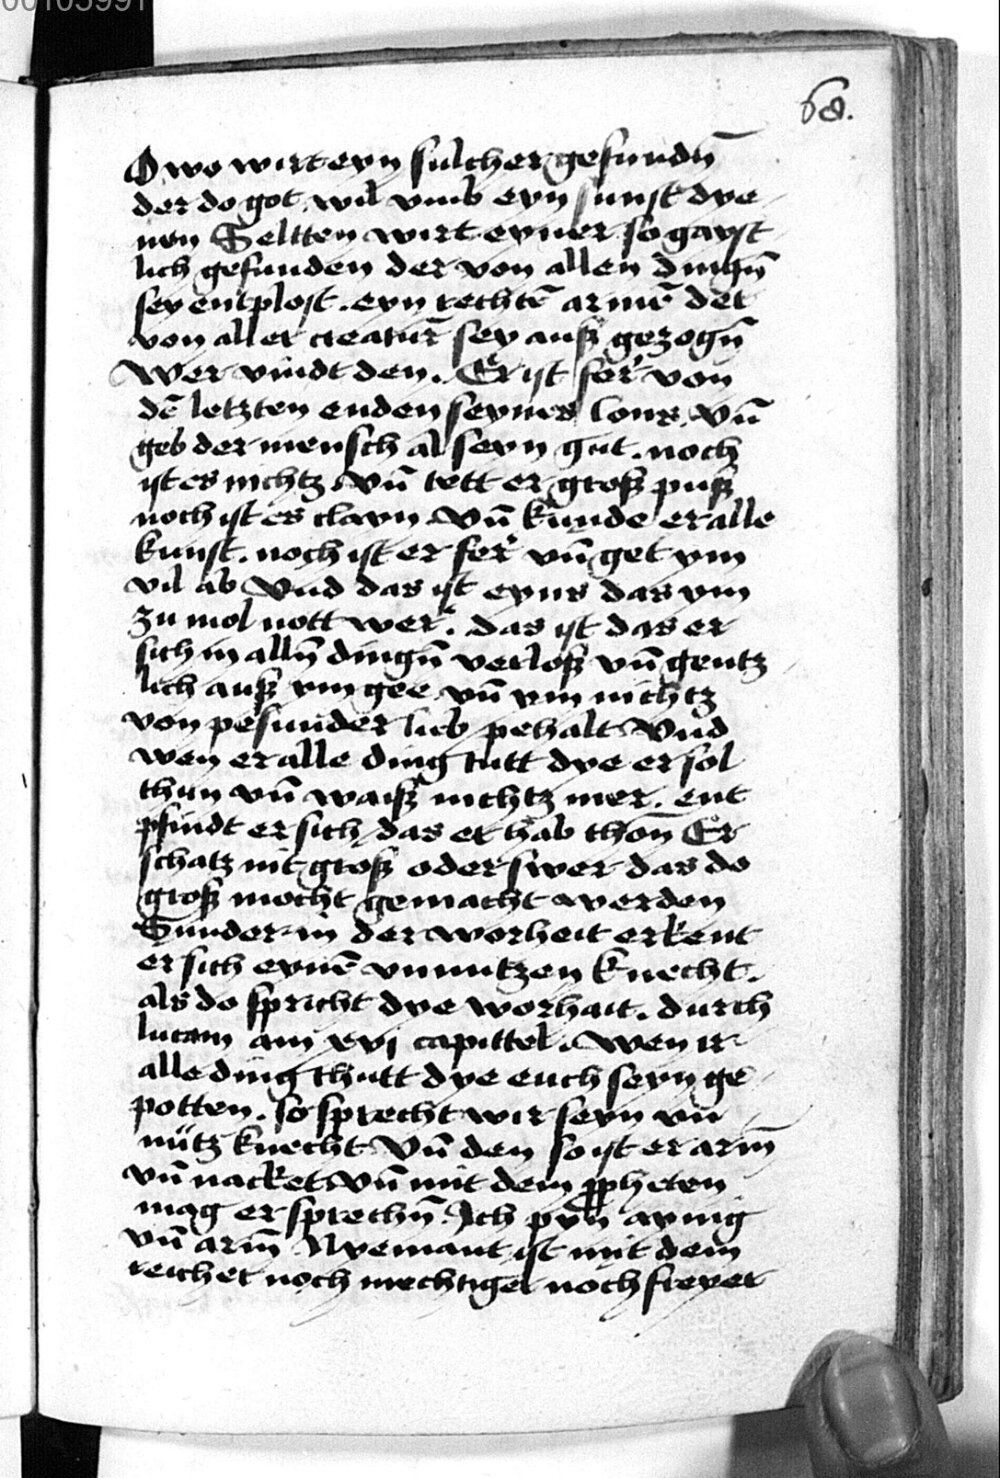 00103991
68.
O wo wirt eyn sulcher gefundn̄
der do got wil vmb eyn sunst dye
nen Seltten wirt eyner so gayst
lich gefunden der von allen dingn̄
sey entplost. eyn rechtē armē der
von aller creatur̄ sey auß gezogn̄
Wer vindt den. Er ist fer von
dē letzten enden seyns lons. Vn̄
geb der mensch al seyn gut. noch
ist es nichtz Vn̄ tett er groß puß
noch ist es clayn Vn̄ kunde er alle
kunst. noch ist er fer vn̄ get ym
vil ab Vnd das ist eyns das ym
zu mol nott wer. das ist das er
sich in alln̄ dingn̄ verloß vn̄ gentz
lich auß ym gee vn̄ ym nichtz
von pesunder lieb pehalt Vnd
wen er alle ding tutt dye er sol
thun vn̄ waiß nichtz mer. ent
pfindt er sich das er hab thon Er
schatz nit groß oder swer das do
groß mocht gemacht werden
Sunder in der worheit erkent
er sich eynē vnnutzen knecht.
als do spricht dye worhait. durch
lucam am xvj capittel. Wen ir
alle ding thutt dye euch seyn ge
potten. so sprecht wir seyn vn
nütz knecht Vn̄ den so ist er arm̄
vn̄ nacket Vn̄ mit dem ppheten
mag er sprechn̄. Ich pyn aynig
vn̄ arm̄ Nyemant ist mit dem
reicher noch mechtiger noch freyer